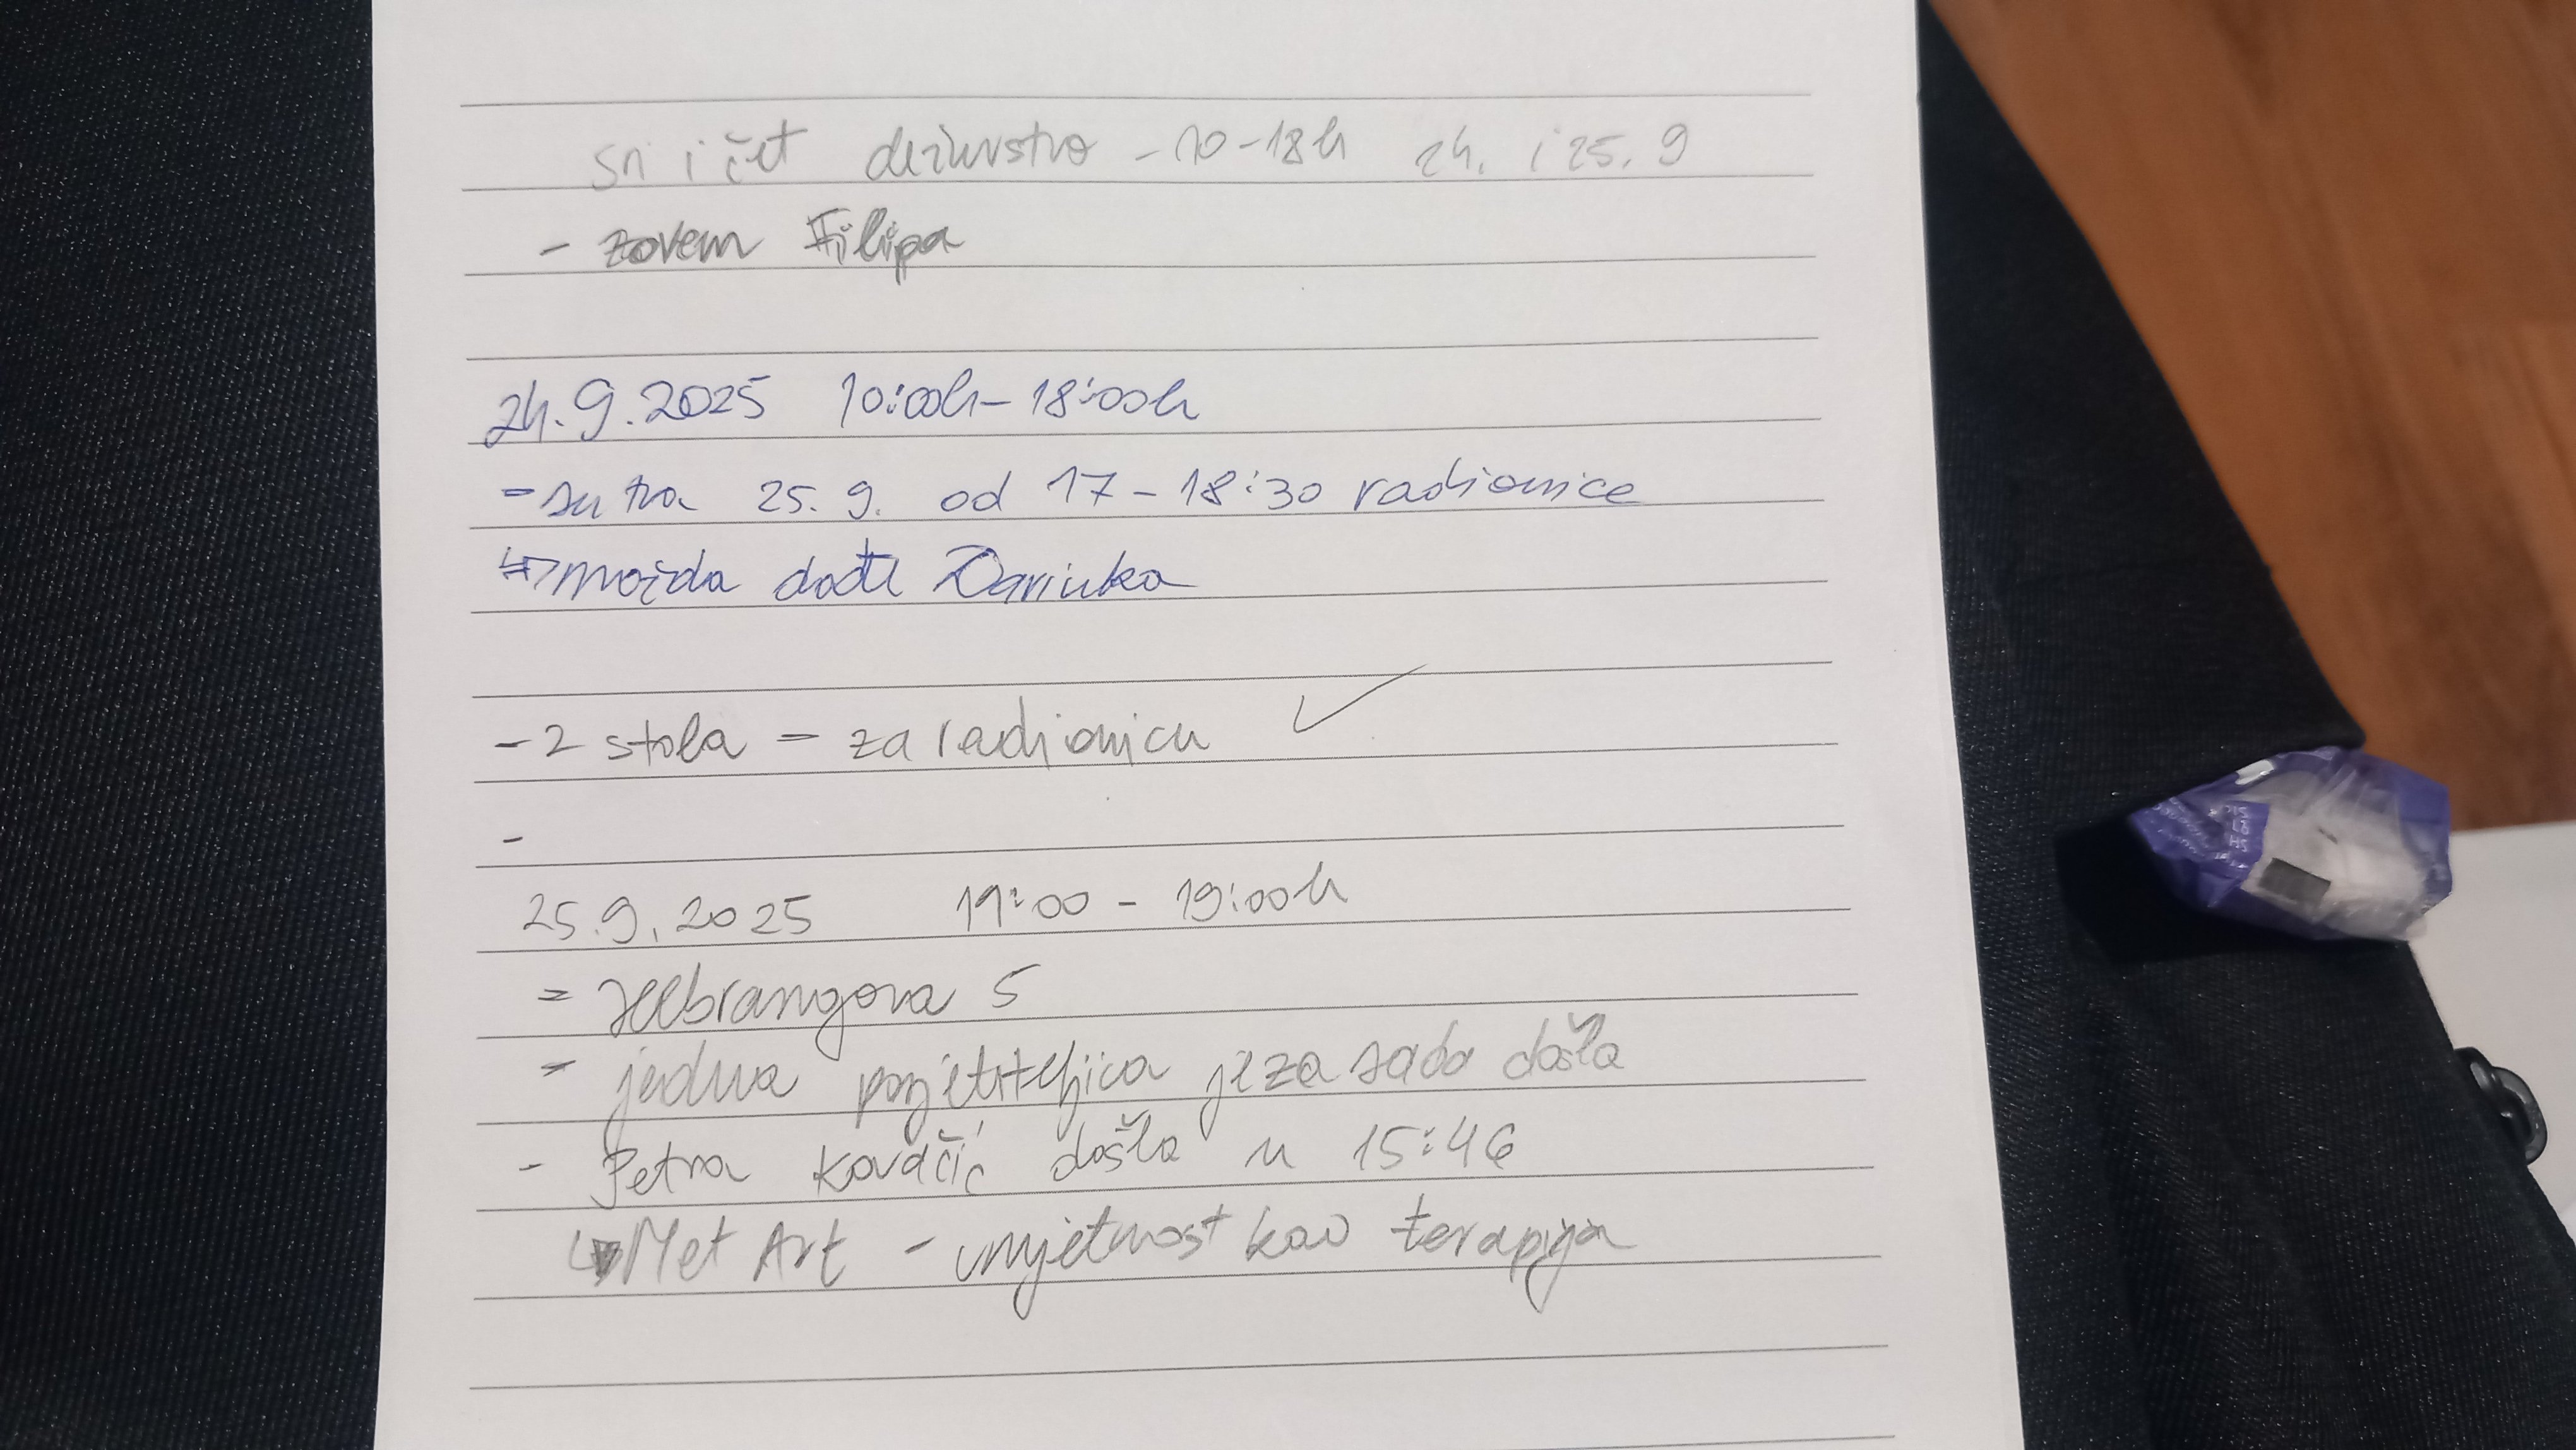 sri i čet dežurstvo - 10-18h 24. i 25. 9
- zovem Filipa
24.9.2025 10:00h - 18:00h
- sutra 25. 9. od 17 - 18:30 radionice
↳ možda dođe Darinka
- 2 stola - za radionicu ✓
-
25.9.2025 11:00 - 19:00h
= Hebrangova 5
- jedna posjetiteljica je za sada došla
- Petra Kovačić došla u 15:46
↳ Met Art - umjetnost kao terapija